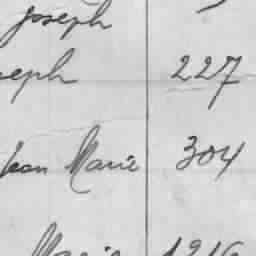 Joseph
seph 227
Jean Marie 304
Marie 1216